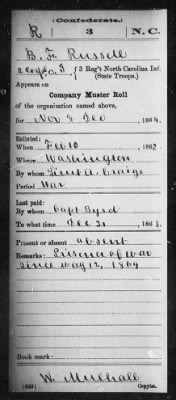 (Confederate.)
R 3 N.C.
B. F. Russell
Co. G, 3 Reg't North Carolina Inf.
(State Troops.)
Appears on
Company Muster Roll
of the organization named above,
for Nov & Dec, 1864
Enlisted:
When Feb 10, 1862
Where Washington
By whom Lieut A. Craige
Period War
Last paid:
By whom Capt Byrd
To what time Dec 31, 1863
Present or absent absent
Remarks: Prisoner of war
since May 12, 1864
Book mark:
W. Mulhall
Copyist.